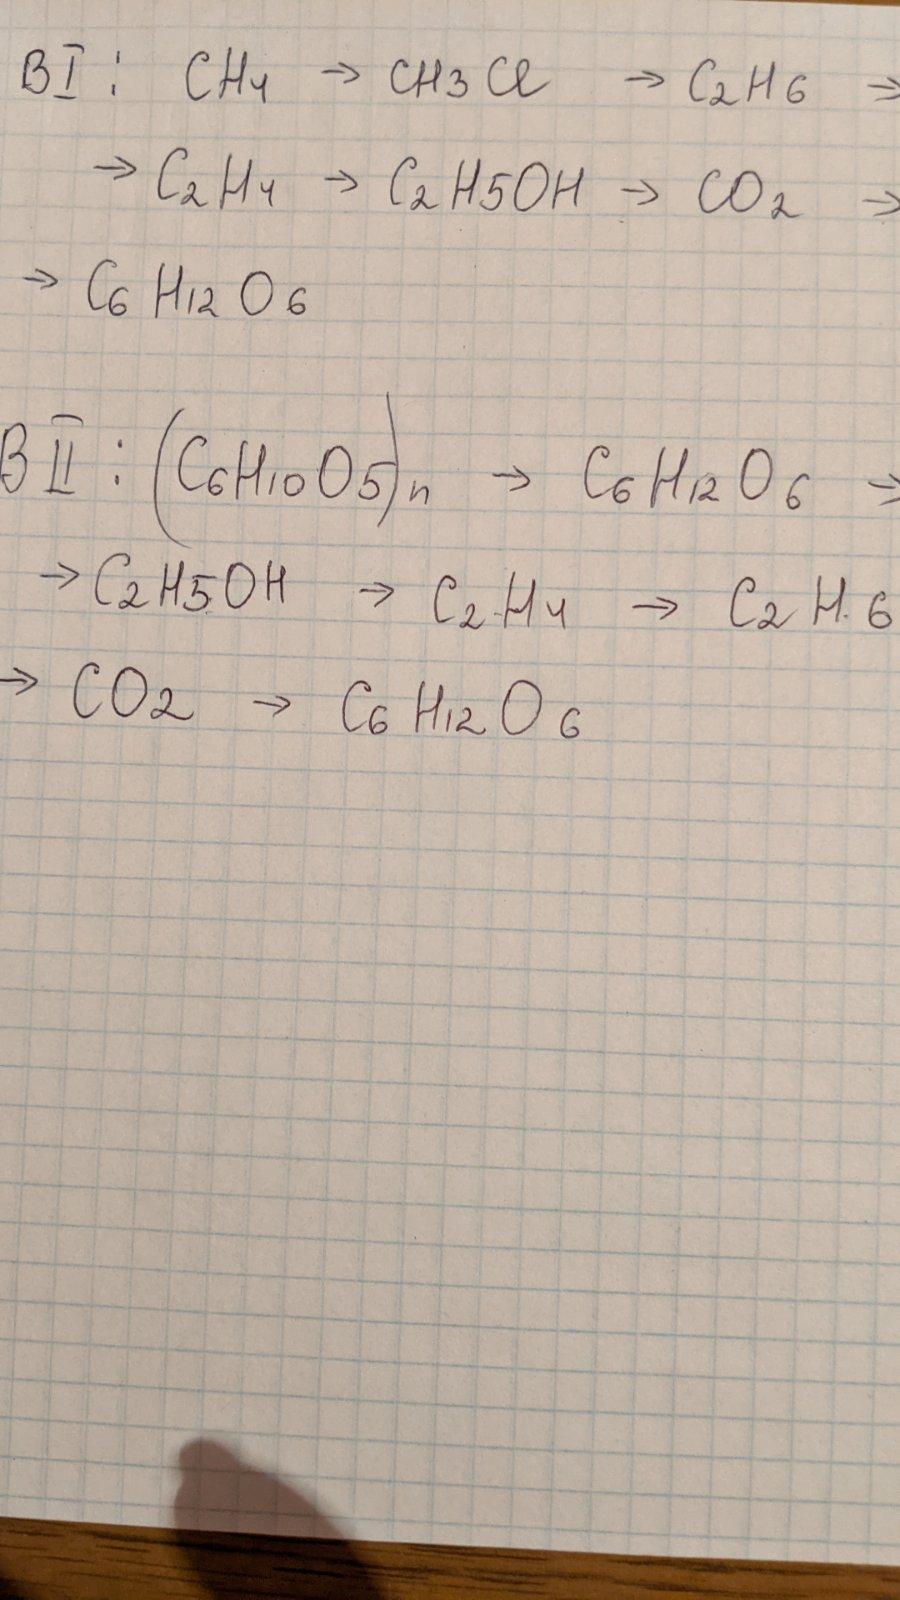 ВI : CH4 → CH3Cl → C2H6 →
→ C2H4 → C2H5OH → CO2 →
→ C6H12O6
ВII : (C6H10O5)n → C6H12O6 →
→ C2H5OH → C2H4 → C2H6
→ CO2 → C6H12O6